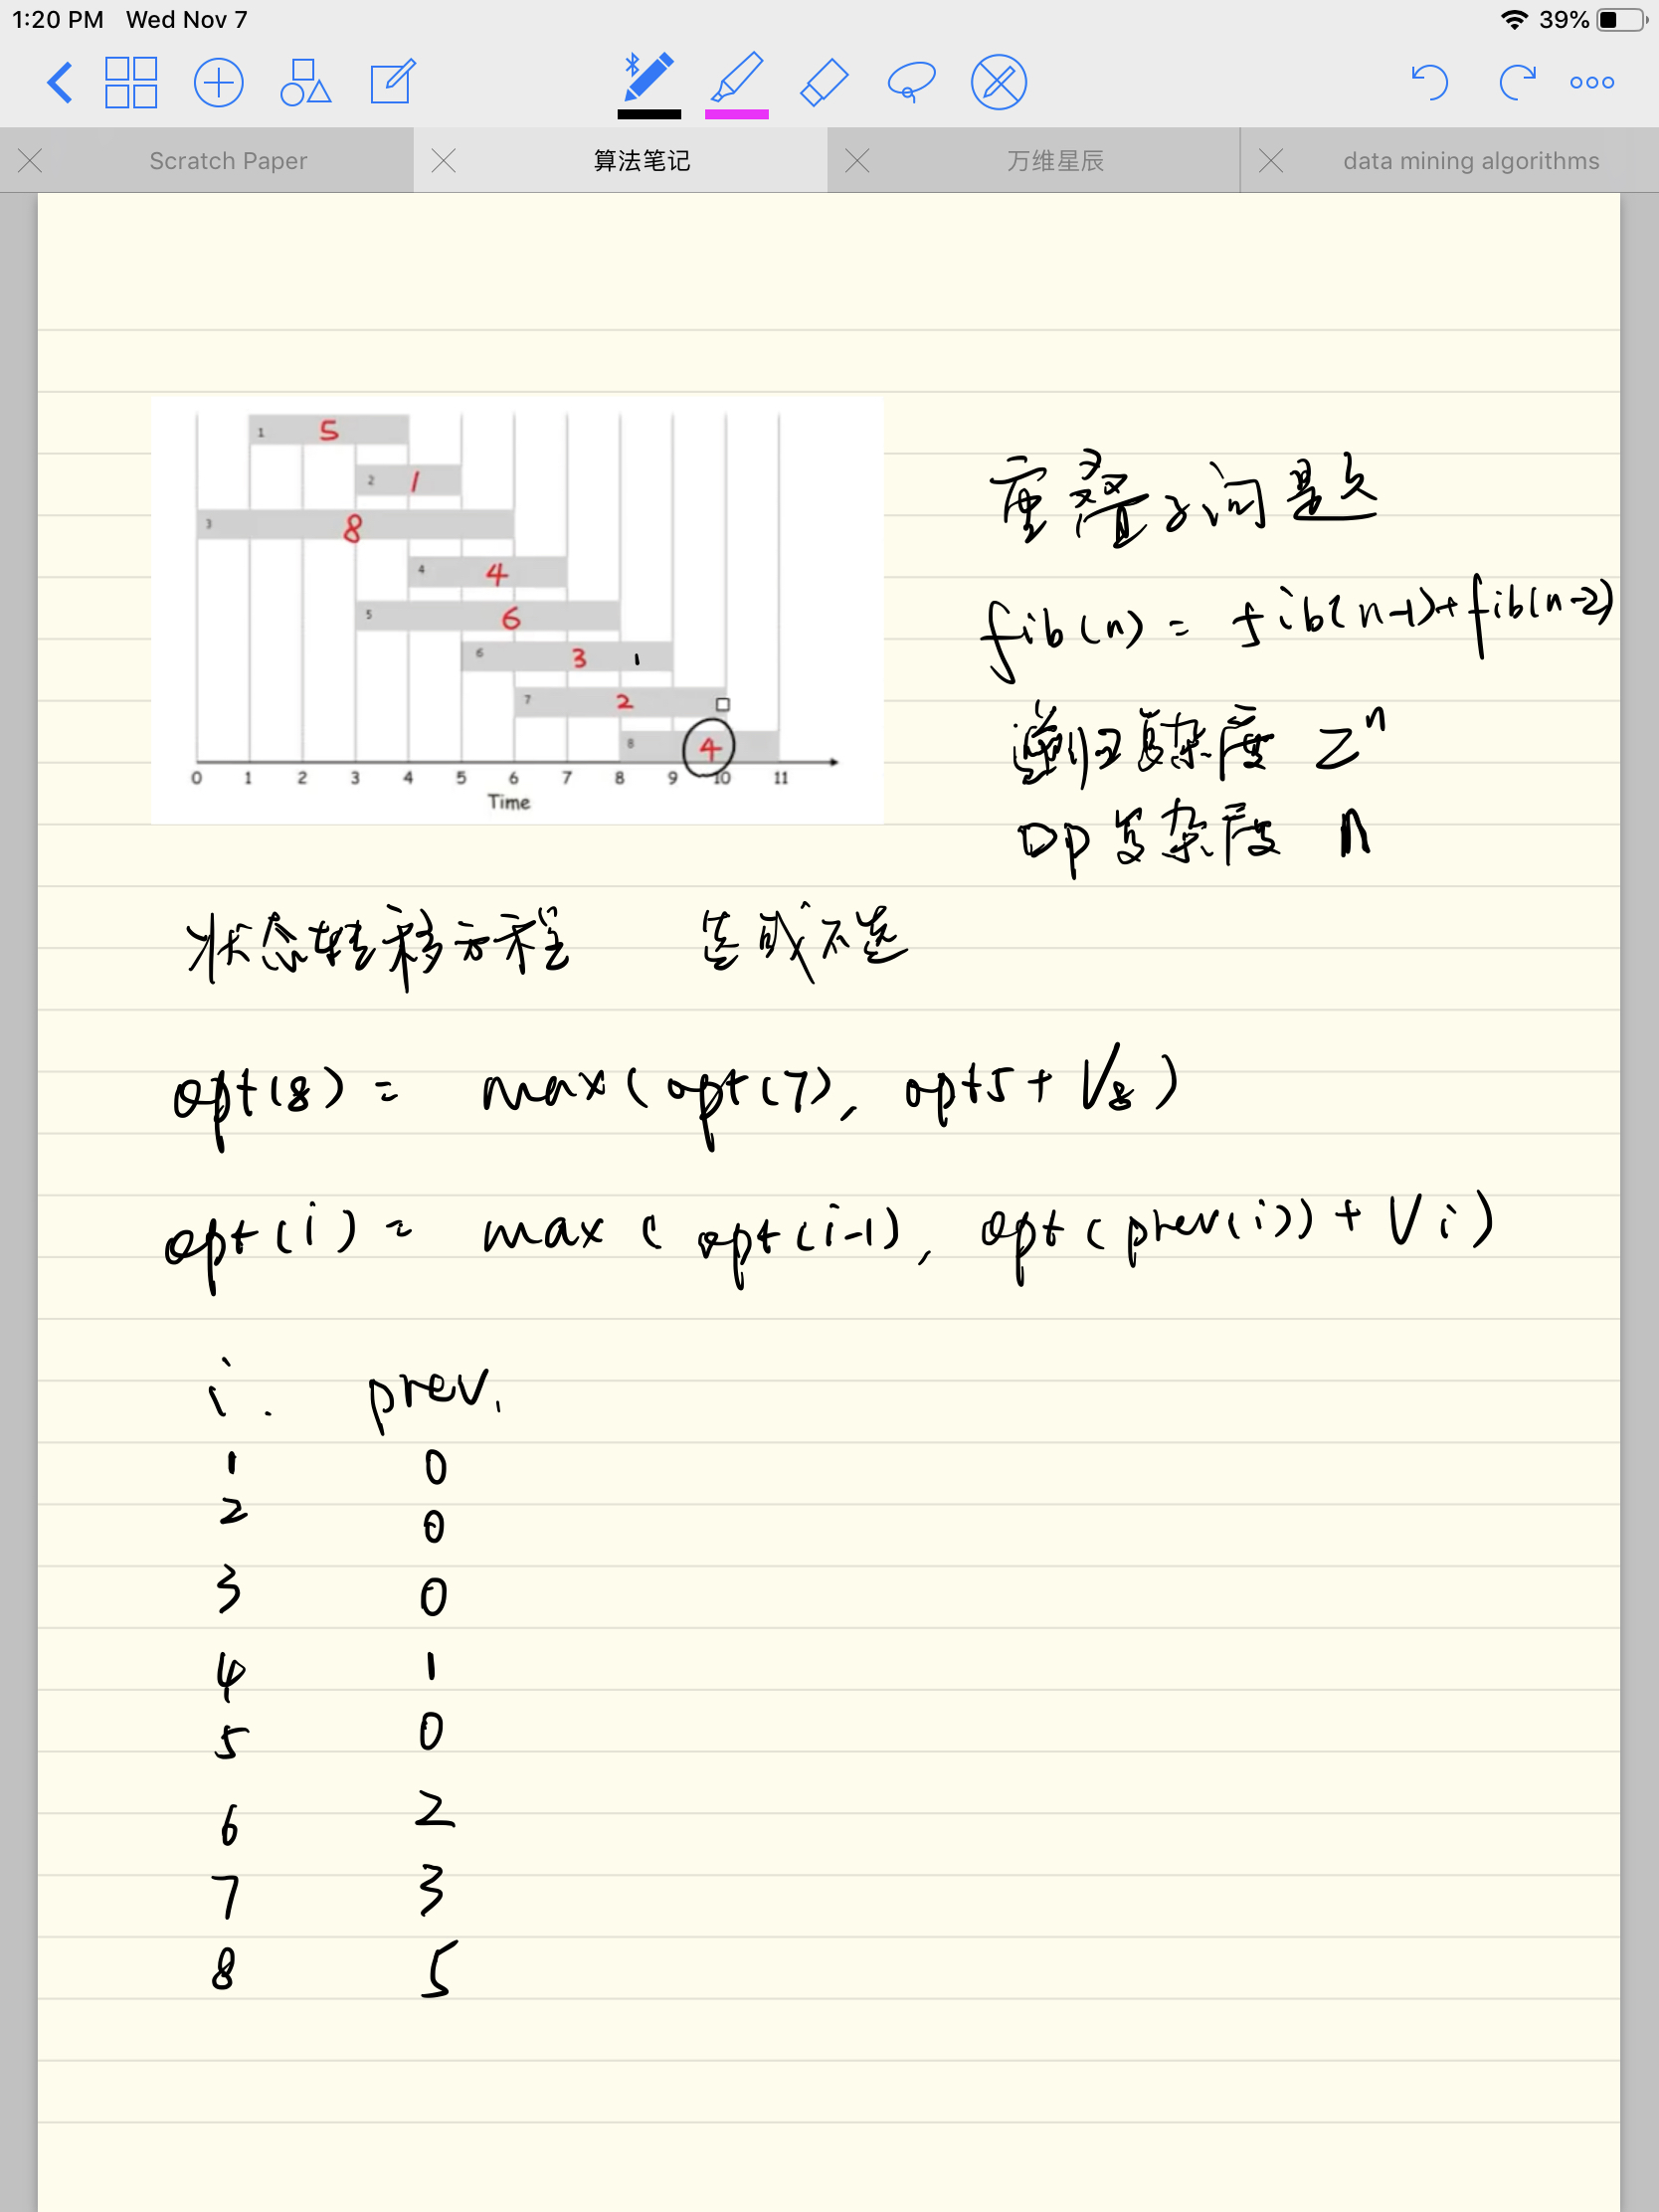 1:20 PM Wed Nov 7 39%
Scratch Paper 算法笔记 万维星辰 data mining algorithms
1 5
2 1
3 8
4 4
5 6
6 3 1
7 2
8 4
0 1 2 3 4 5 6 7 8 9 10 11
Time
重叠子问题
fib(n) = fib(n-1)+fib(n-2)
递归复杂度 2ⁿ
DP复杂度 n
状态转移方程 选或不选
opt(8) = max(opt(7), opt5 + V₈)
opt(i) = max(opt(i-1), opt(prev(i)) + Vi)
i. prev.
1 0
2 0
3 0
4 1
5 0
6 2
7 3
8 5